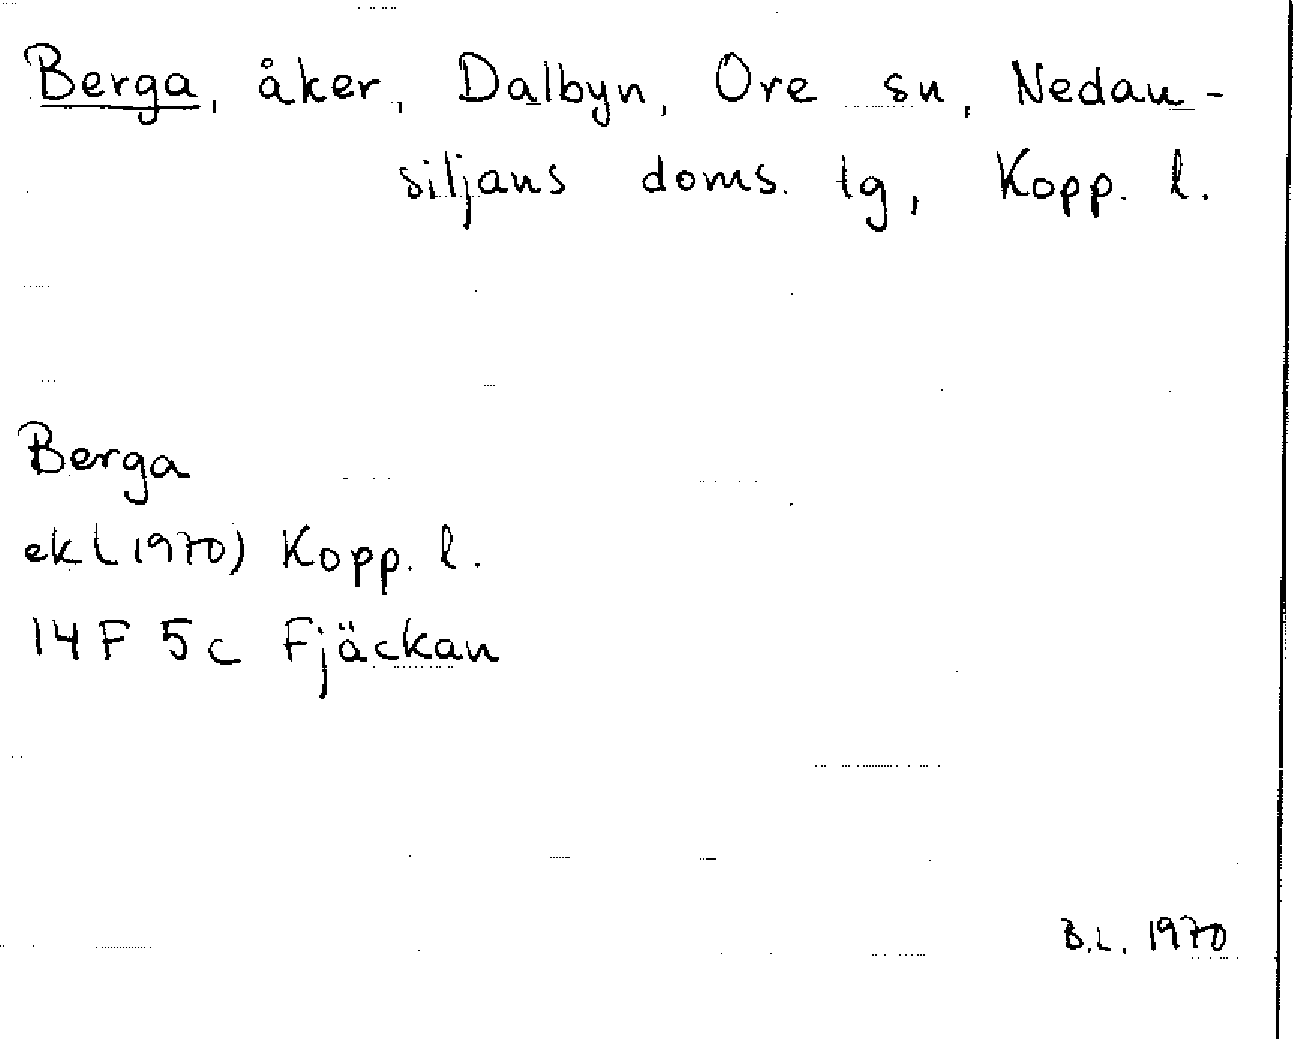 Berga, åker, Dalbyn, Ore sn, Nedan-
siljans doms. tg, Kopp. l.
Berga
ek (1970) Kopp. l.
14F 5c Fjäckan
B.L. 1970